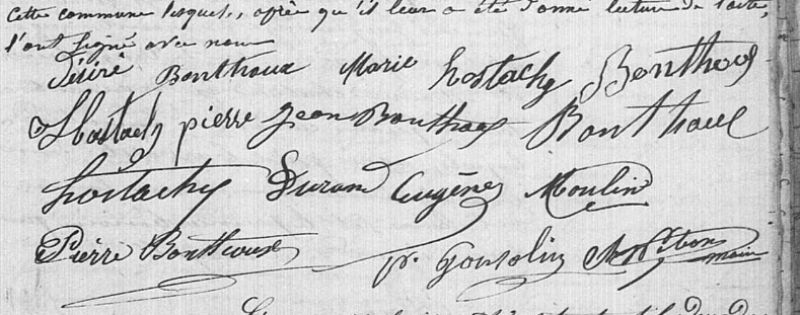 cette commune lesquels, après qu'il leur a été donné lecture de l'acte,
l'ont signé avec nous
Désiré Bonthoux Marie hostachy Bonthoux
hostachy pierre Jean Bonthoux Bonthoux
hostachy Durand Eugène Moulin
Pierre Bonthoux p. Gonsolin maire